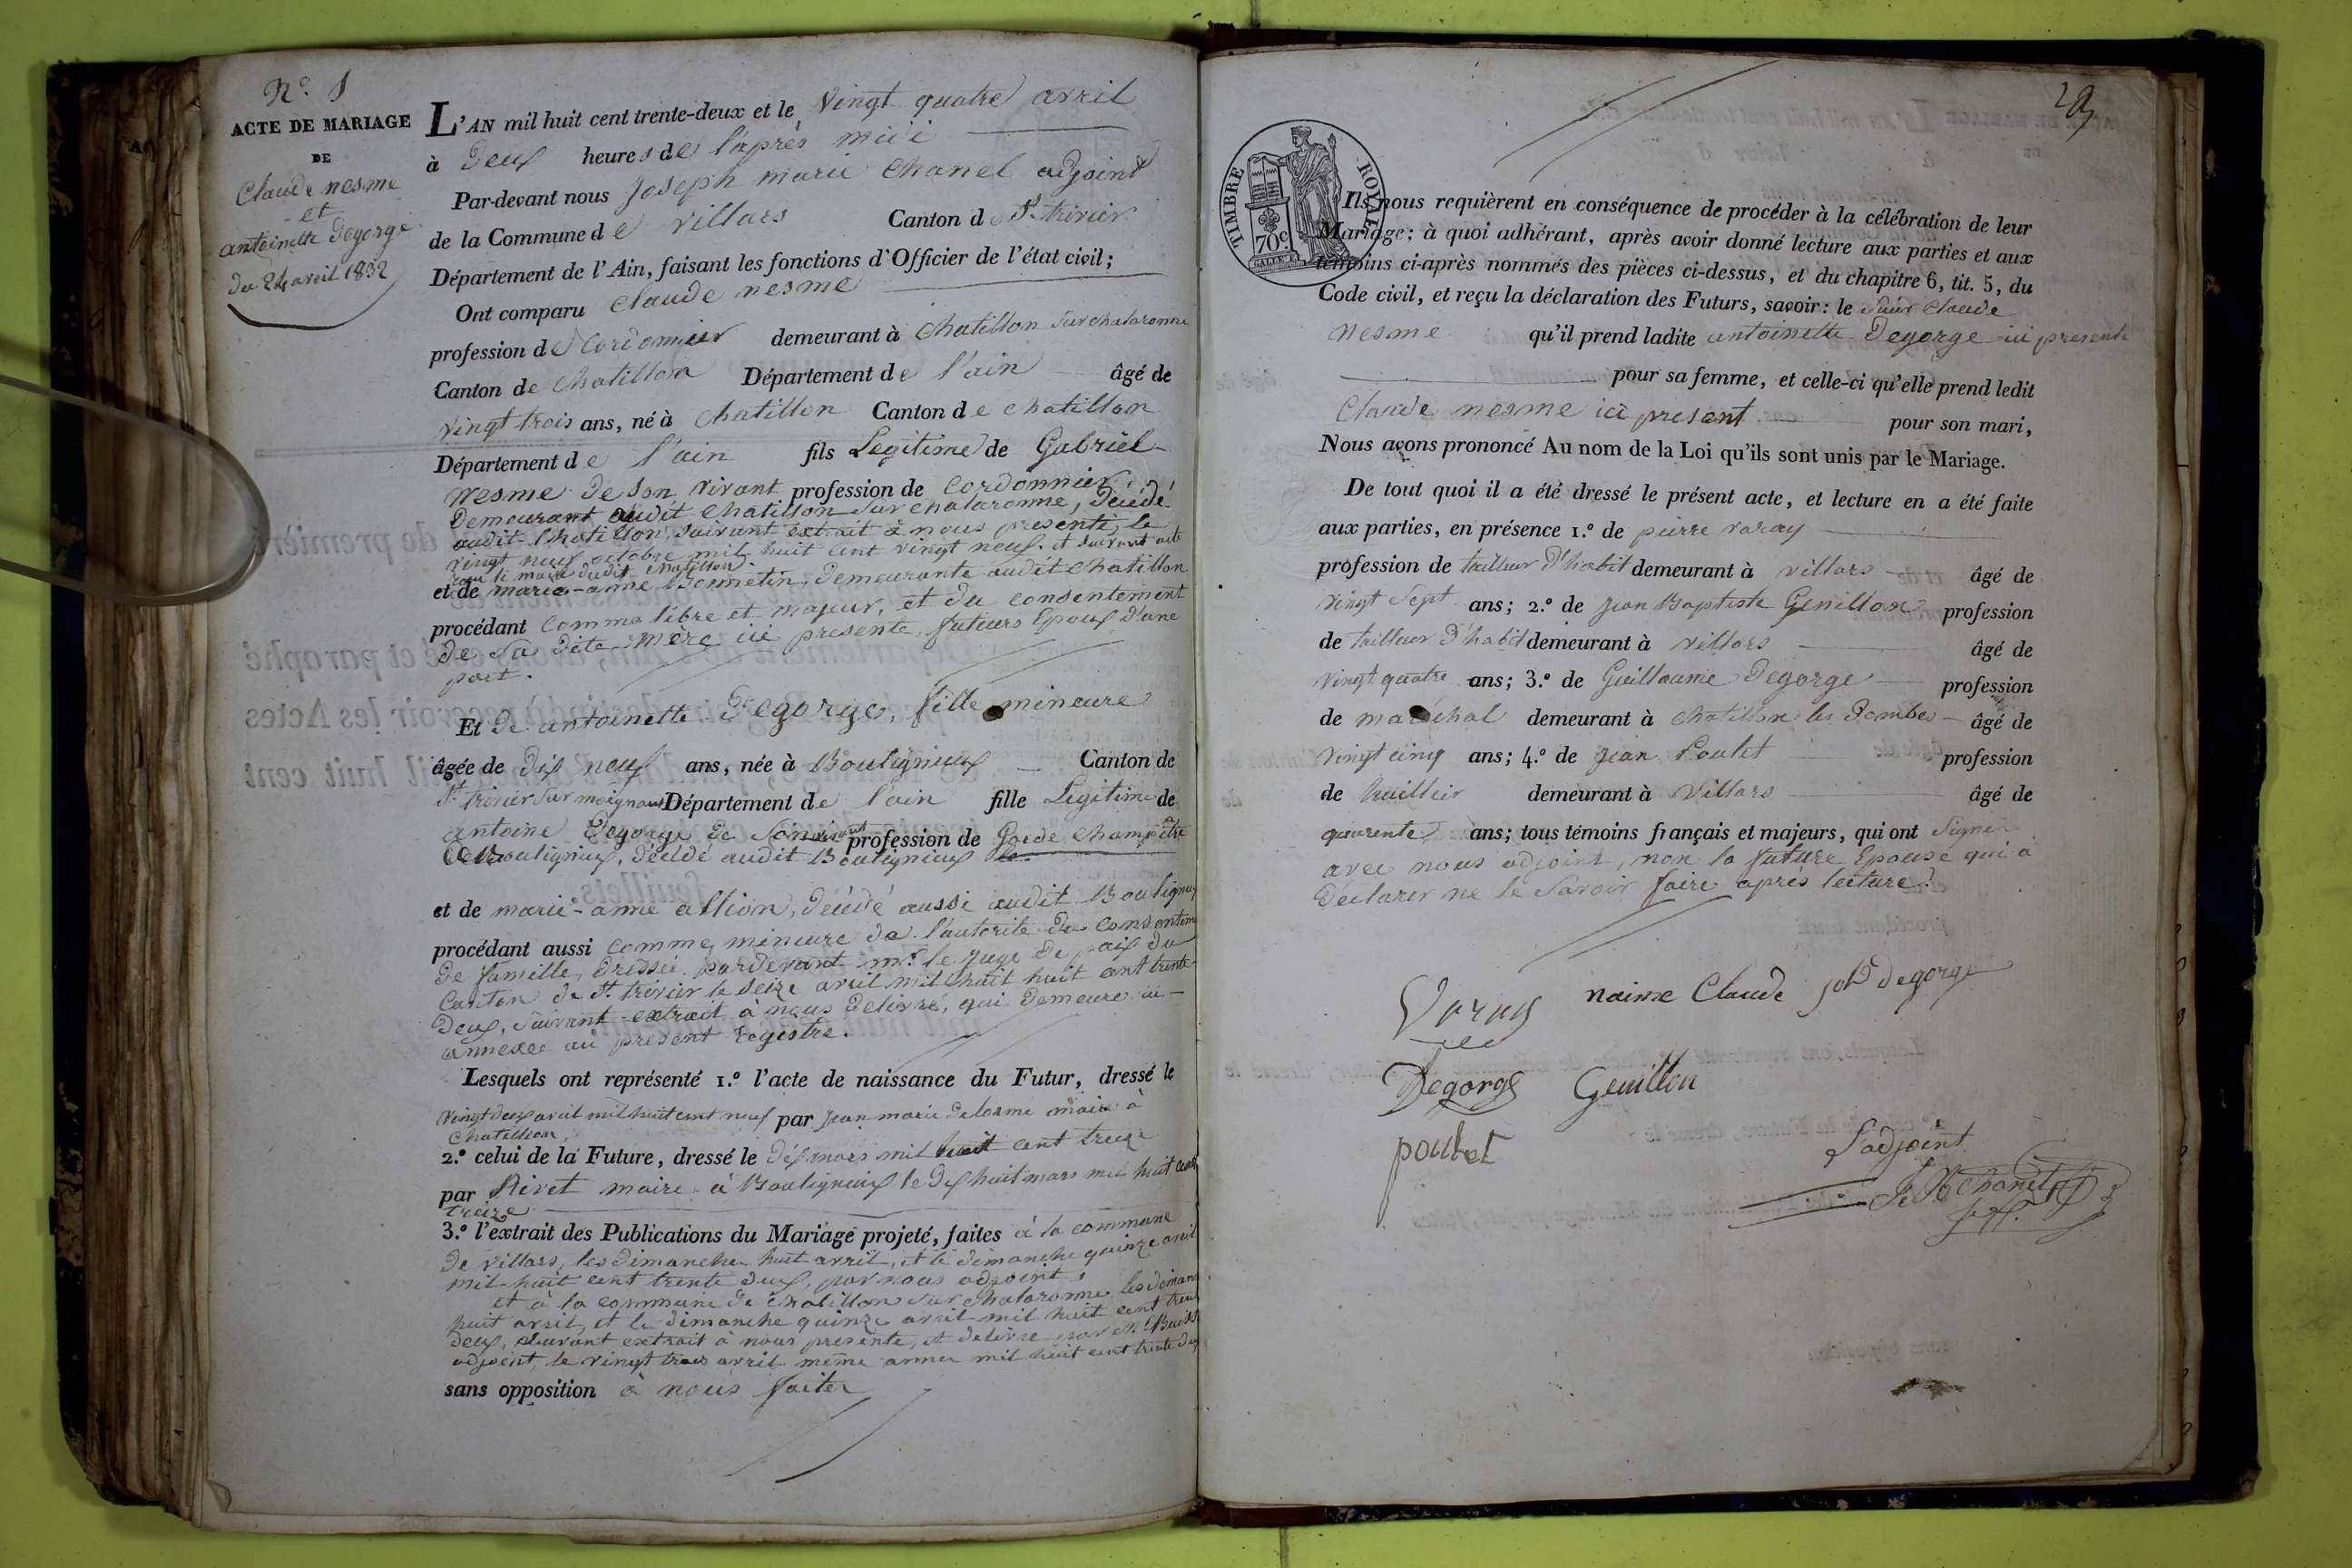 N.° 8
ACTE DE MARIAGE
DE
Claude nesme
et
antoinette Degorge
du 24 avril 1832
L'AN mil huit cent trente-deux et le vingt quatre avril
à Deux heures de l'après midi
Par-devant nous Joseph marie Chanel adjoint
de la Commune de villars Canton de St. trivier
Département de l'Ain, faisant les fonctions d'Officier de l'état civil;
Ont comparu Claude nesme
profession de Cordonnier demeurant à Chatillon sur chalaronne
Canton de Chatillon Département de l'ain âgé de
vingt trois ans, né à Chatillon Canton de Chatillon
Département de l'ain fils Legitime de Gabriel
nesme de son vivant profession de Cordonnier
Demeurant audit Chatillon sur chalaronne, décédé
audit Chatillon, suivant extrait à nous presenté, le
vingt neuf octobre mil huit cent vingt neuf. et suivant acte
le maire dudit Chatillon.
et de marie-anne Bonnetin, demeurante audit Chatillon
procédant Comme libre et majeur, et du consentement
de sa dite mère ici presente, futeurs Epoux d'une
part.
Et De antoinette Degorge, fille mineure
âgée de dix neuf ans, née à Bouligneux Canton de
St. trivier sur moignans Département de l'ain fille Legitime de
antoine Degorge de son vivant profession de Garde Champêtre
de Bouligneux, décédé audit Bouligneux
et de marie-anne allion, décédé aussi audit Bouligneux
procédant aussi comme mineure de l'autorite du consentement
de famille, dressée pardevant mr. le juge de paix du
Canton de St. trivier le seize avril mil huit huit cent trente
Deux, suivant extrait à nous delivré, qui demeure ici
annexée au present registre.
Lesquels ont représenté 1.° l'acte de naissance du Futur, dressé le
vingt deux avril mil huit cent neuf par Jean marie Delorme maire à
Chatillon,
2.° celui de la Future, dressé le dix mars mil huit cent treize
par Rivet maire à Bouligneux le dix huit mars mil huit cent
treize
3.° l'extrait des Publications du Mariage projeté, faites à la commune
de villars, les dimanche huit avril, et le dimanche quinze avril
mil huit cent trente deux, par nous adjoint,
et à la commune de Chatillon sur chalaronne les diman
huit avril, et le dimanche quinze avril mil huit cent trente
deux, suivant extrait à nous presenté, et delivré par Mr.
adjoint, le vingt trois avril même année mil huit cent trente deux
sans opposition à nous faites
29
TIMBRE ROYAL
70c.
Ils nous requièrent en conséquence de procéder à la célébration de leur
Mariage; à quoi adhérant, après avoir donné lecture aux parties et aux
témoins ci-après nommés des pièces ci-dessus, et du chapitre 6, tit. 5, du
Code civil, et reçu la déclaration des Futurs, savoir: le Sieur Claude
Nesme qu'il prend ladite antoinette Degorge ici presente
pour sa femme, et celle-ci qu'elle prend ledit
Claude nesme ici present pour son mari,
Nous avons prononcé Au nom de la Loi qu'ils sont unis par le Mariage.
De tout quoi il a été dressé le présent acte, et lecture en a été faite
aux parties, en présence 1.° de pierre varay
profession de tailleur D'habit demeurant à villars âgé de
vingt sept ans; 2.° de jean Baptiste Genillon profession
de tailleur D'habit demeurant à villars âgé de
vingt quatre ans; 3.° de Guillaume Degorge profession
de maréchal demeurant à Chatillon les Dombes âgé de
vingt cinq ans; 4.° de Jean Poulet profession
de demeurant à villars âgé de
quarente ans; tous témoins français et majeurs, qui ont Signer
avec nous adjoint, non la future Epouse qui a
Declarer ne le Savoir faire après lecture.
Varay naime Claude degorge
Degorge Genillon
poulet L'adjoint
Chanel